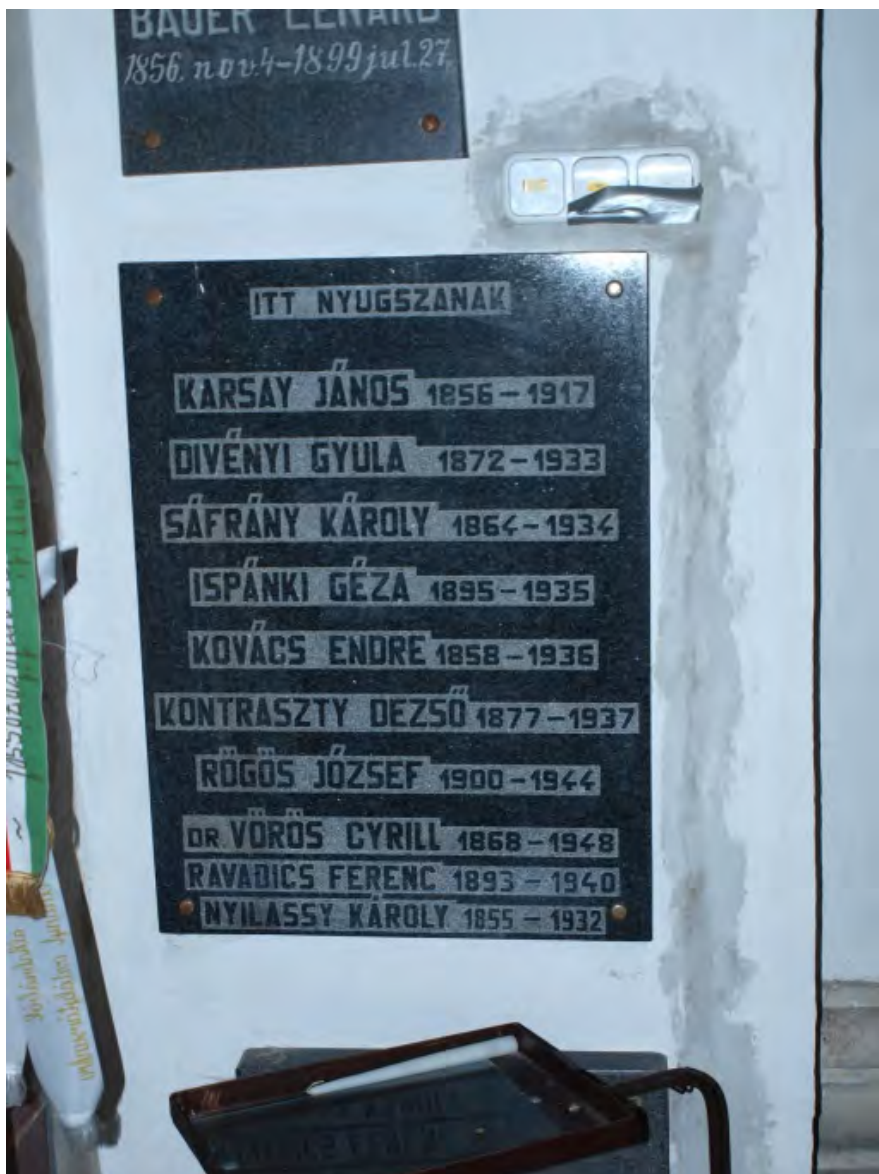 BAUER LÉNÁRD
1856. nov.4-1899 jul.27.
ITT NYUGSZANAK
KARSAY JÁNOS 1856-1917
DIVÉNYI GYULA 1872-1933
SÁFRÁNY KÁROLY 1864-1934
ISPÁNKI GÉZA 1895-1935
KOVÁCS ENDRE 1858-1936
KONTRASZTY DEZSŐ 1877-1937
RÖGÖS JÓZSEF 1900-1944
DR VÖRÖS CYRILL 1868-1948
RAVADICS FERENC 1893-1940
NYILASSY KÁROLY 1855-1932